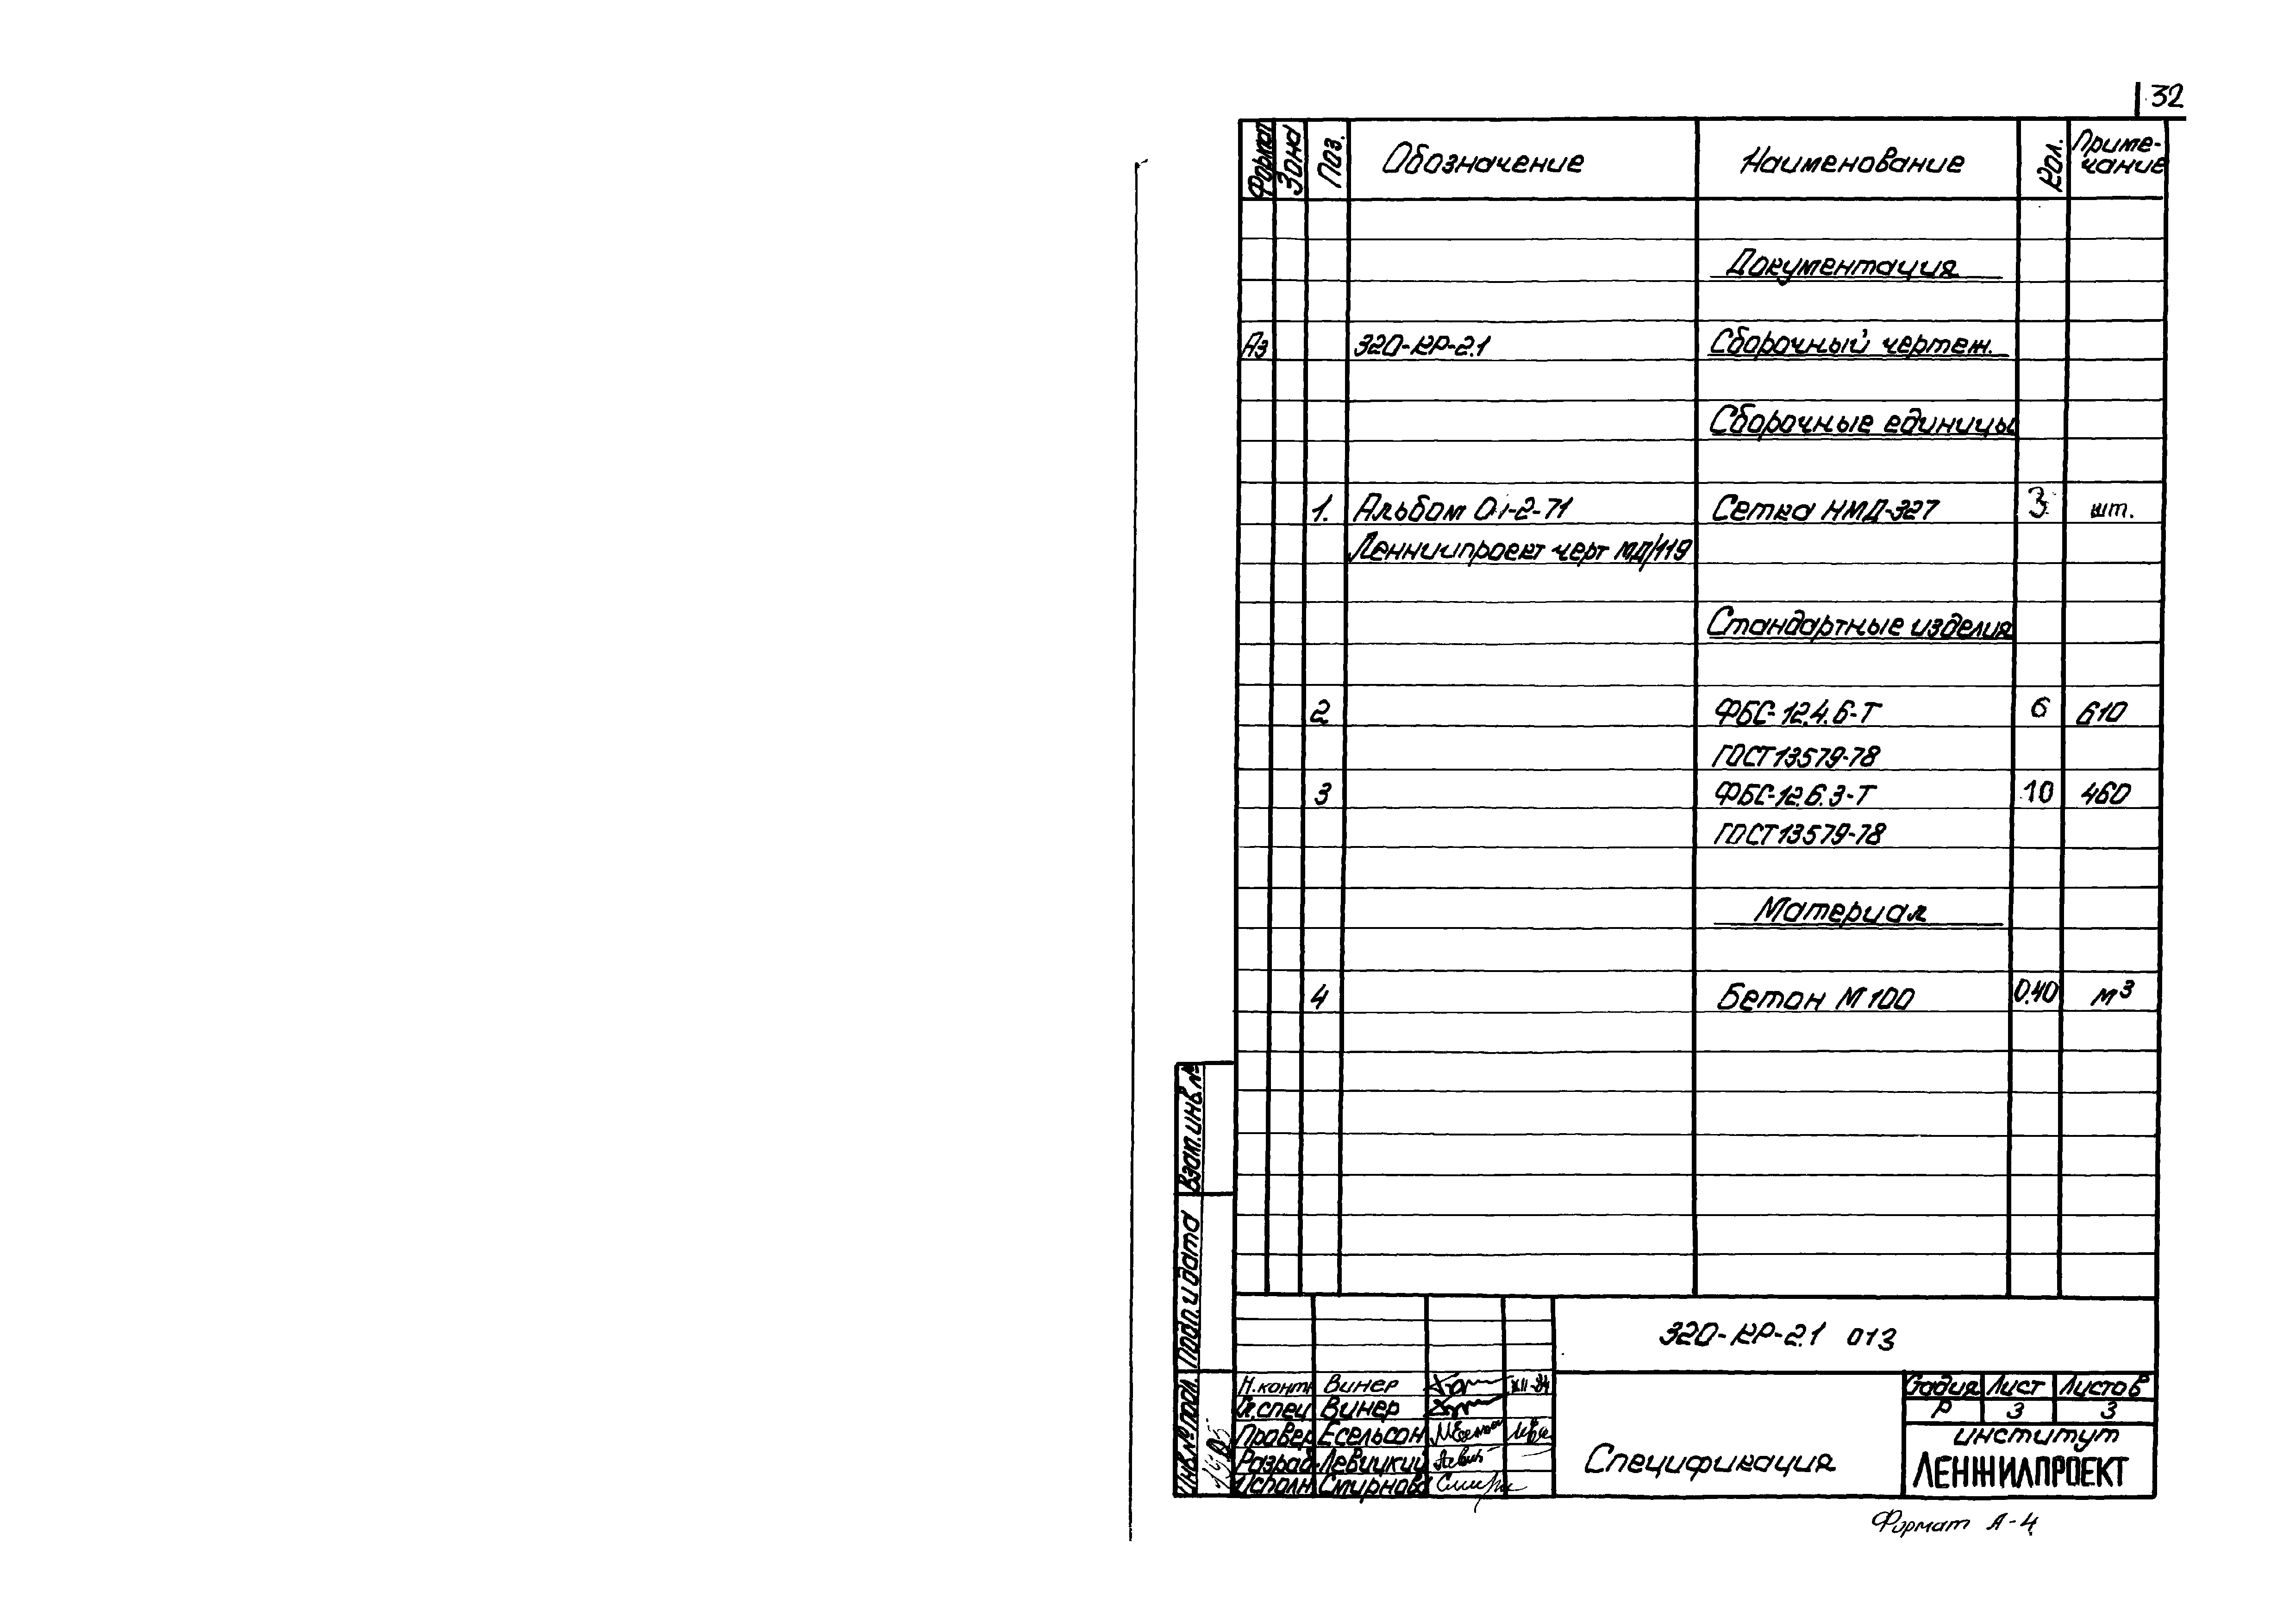 32
Формат Зона Поз. Обозначение Наименование Кол. Приме-
чание
Документация
А3 320-КР-2.1 Сборочный чертеж.
Сборочные единицы
1. Альбом 01-2-71 Сетка НМД-327 3 шт.
Ленниипроект черт МД/119
Стандартные изделия
2 ФБС-12.4.6-Т 6 610
ГОСТ 13579-78
3 ФБС-12.6.3-Т 10 460
ГОСТ 13579-78
Материал
4 Бетон М100 0.40 м³
Взам.инв.№
Подп. и дата
Инв.№ подл.
320-КР-2.1 013
Н.конт Винер XII-84
Гл.спец Винер
Провер Есельсон
Разраб. Левицкий
Исполн Смирнова
Спецификация
Стадия Лист Листов
Р 3 3
институт
ЛЕНЖИЛПРОЕКТ
Формат А-4